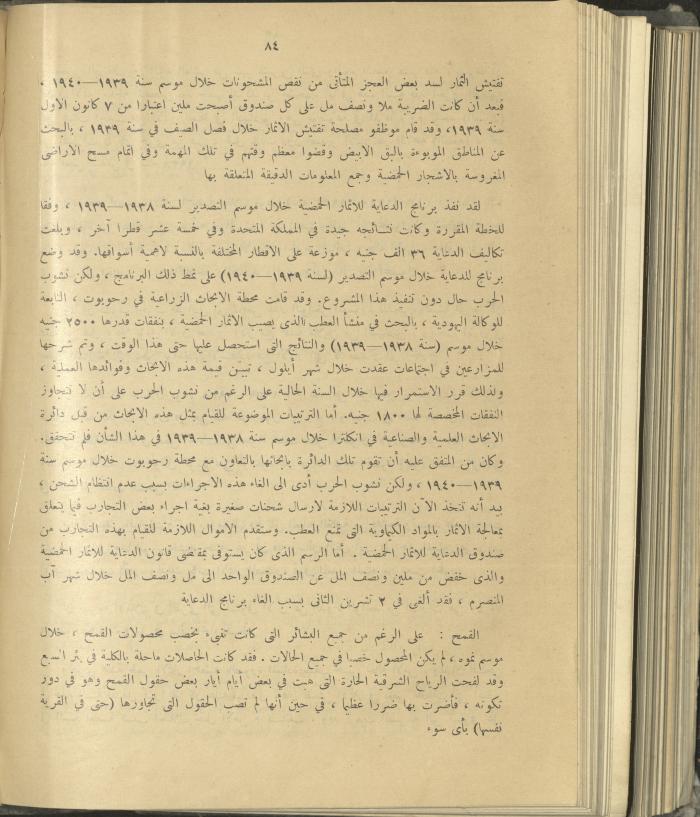 ٨٤
تفتيش الثمار لسد بعض العجز المتأتى من نقص المشحونات خلال موسم سنة ١٩٣٩—١٩٤٠ ،
فبعد أن كانت الضريبة ملا ونصف مل على كل صندوق أصبحت ملين اعتبارا من ٧ كانون الاول
سنة ١٩٣٩، وقد قام موظفو مصلحة تفتيش الاثمار خلال فصل الصيف فى سنة ١٩٣٩ ، بالبحث
عن المناطق الموبوءة بالبق الابيض وقضوا معظم وقتهم فى تلك المهمة وفى اتمام مسح الاراضى
المغروسة بالاشجار الحمضية وجمع المعلومات الدقيقة المتعلقة بها
لقد نفذ برنامج الدعاية للاثمار الحمضية خلال موسم التصدير لسنة ١٩٣٨—١٩٣٩ ، وفقا
للخطة المقررة وكانت نتائجه جيدة فى المملكة المتحدة وفى خمسة عشر قطرا آخر ، وبلغت
تكاليف الدعاية ٣٦ الف جنيه ، موزعة على الاقطار المختلفة بالنسبة لاهمية أسواقها. وقد وضع
برنامج للدعاية خلال موسم التصدير (لسنة ١٩٣٩—١٩٤٠) على نمط ذلك البرنامج ، ولكن نشوب
الحرب حال دون تنفيذ هذا المشروع. وقد قامت محطة الابحاث الزراعية فى رحوبوت ، التابعة
للوكالة اليهودية ، بالبحث فى منشأ العطب الذى يصيب الاثمار الحمضية ، بنفقات قدرها ٢٥٠٠ جنيه
خلال موسم (سنة ١٩٣٨—١٩٣٩) والنتائج التى استحصل عليها حتى هذا الوقت ، وتم شرحها
للمزارعين فى اجتماعات عقدت خلال شهر أيلول ، تبين قيمة هذه الابحاث وفوائدها العملية ،
ولذلك قرر الاستمرار فيها خلال السنة الحالية على الرغم من نشوب الحرب على أن لا تتجاوز
النفقات المخصصة لها ١٨٠٠ جنيه. أما الترتيبات الموضوعة للقيام بمثل هذه الابحاث من قبل دائرة
الابحاث العلمية والصناعية فى انكلترا خلال موسم سنة ١٩٣٨—١٩٣٩ فى هذا الشأن فلم تتحقق.
وكان من المتفق عليه أن تقوم تلك الدائرة بابحاثها بالتعاون مع محطة رحوبوت خلال موسم سنة
١٩٣٩—١٩٤٠ ، ولكن نشوب الحرب أدى الى الغاء هذه الاجراءات بسبب عدم انتظام الشحن ،
بيد أنه تتخذ الآن الترتيبات اللازمة لارسال شحنات صغيرة بغية اجراء بعض التجارب فيما يتعلق
بمعالجة الاثمار بالمواد الكيماوية التى تمنع العطب. وستقدم الاموال اللازمة للقيام بهذه التجارب من
صندوق الدعاية للاثمار الحمضية . أما الرسم الذى كان يستوفى بمقتضى قانون الدعاية للاثمار الحمضية
والذى خفض من ملين ونصف المل عن الصندوق الواحد الى مل ونصف المل خلال شهر آب
المنصرم ، فقد ألغى فى ٢ تشرين الثانى بسبب الغاء برنامج الدعاية
القمح : على الرغم من جميع البشائر التى كانت تنبىء بخصب محصولات القمح ، خلال
موسم نموه ، لم يكن المحصول خصبا فى جميع الحالات . فقد كانت الحاصلات ماحلة بالكلية فى بئر السبع
وقد لفحت الرياح الشرقية الحارة التى هبت فى بعض أيام أيار بعض حقول القمح وهو فى دور
تكونه ، فأضرت بها ضررا عظيما ، فى حين أنها لم تصب الحقول التى تجاورها (حتى فى القرية
نفسها) بأى سوء